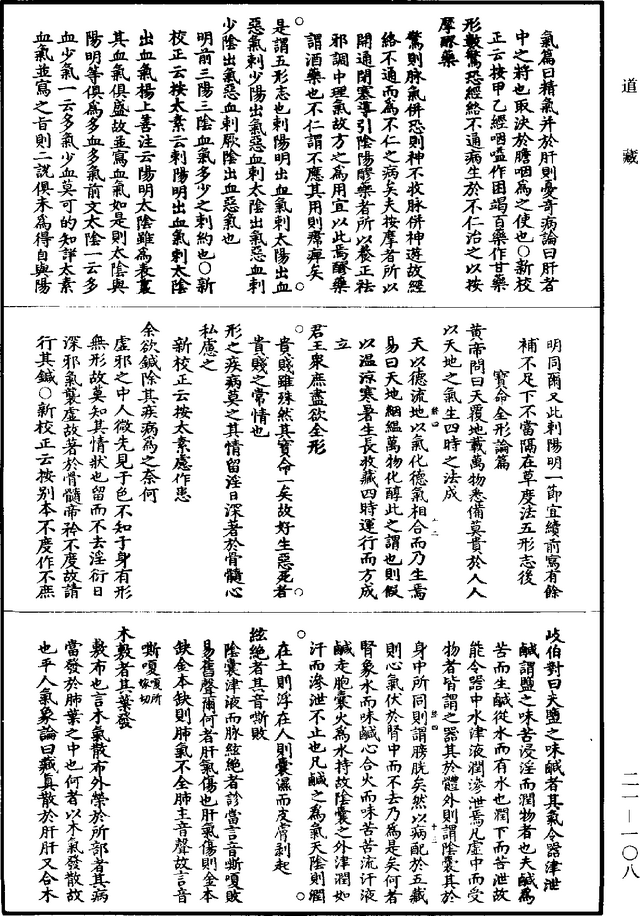 道藏
氣篇曰精氣并於肝則憂奇病論曰肝者
中之將也取決於膽咽為之使也○新校
正云按甲乙經咽嗌作困竭百藥作甘藥
形數驚恐經絡不通病生於不仁治之以按
摩醪藥
驚則脉氣併恐則神不收脉併神遊故經
絡不通而為不仁之病矣夫按摩者所以
開通閉塞導引陰陽醪藥者所以養正祛
邪調中理氣故方之為用宜以此焉醪藥
謂酒藥也不仁謂不應其用則𤸷痺矣
是謂五形志也刺陽明出血氣刺太陽出血
惡氣刺少陽出氣惡血刺太陰出氣惡血刺
少陰出氣惡血刺厥陰出血惡氣也
明前三陽三陰血氣多少之刺約也○新
校正云按太素云刺陽明出血氣刺太陰
出血氣楊上善注云陽明太陰雖為表裏
其血氣俱盛故並寫血氣如是則太陰與
陽明等俱為多血多氣前文太陰一云多
血少氣一云多氣少血莫可的知詳太素
血氣並寫之旨則二說俱未為得自與陽
明同爾又此刺陽明一節宜續前寫有餘
補不足下不當隔在草度法五形志後
寶命全形論篇
黃帝問曰天覆地載萬物悉備莫貴於人人
以天地之氣生四時之法成
天以德流地以氣化德氣相合而乃生焉
易曰天地絪縕萬物化醇此之謂也則假
以溫涼寒暑生長收藏四時運行而方成
立
君王眾庶盡欲全形
貴賤雖殊然其寶命一矣故好生惡死者
貴賤之常情也
形之疾病莫之其情留淫日深著於骨髓心
私慮之
新校正云按太素慮作患
余欲鍼除其疾病為之奈何
虛邪之中人微先見于色不知于身有形
無形故莫知其情狀也留而不去淫衍日
深邪氣襲虛故著於骨髓帝矜不度故請
行其鍼○新校正云按別本不度作不庶
岐伯對曰夫鹽之味鹹者其氣令器津泄
鹹謂鹽之味苦浸淫而潤物者也夫鹹為
苦而生鹹從水而有水也潤下而苦泄故
能令器中水津液潤滲泄焉凡虛中而受
物者皆謂之器其於體外則謂陰囊其於
身中所同則謂膀胱矣然以病配於五藏
則心氣伏於腎中而不去乃為是矣何者
腎象水而味鹹心合火而味苦苦流汗液
鹹走胞囊火為水持故陰囊之外津潤如
汗而滲泄不止也凡鹹之為氣天陰則潤
在土則浮在人則囊濕而皮膚剝起
絃絕者其音嘶敗
陰囊津液而脉絃絕者診當言音嘶嗄敗
易舊聲爾何者肝氣傷也肝氣傷則金本
缺金本缺則肺氣不全肺主音聲故言音
嘶嗄嗄所嫁切
木敷者其葉發
敷布也言木氣散布外榮於所部者其病
當發於肺葉之中也何者以木氣發散故
也平人氣象論曰藏真散於肝肝又合木
二一—一〇八